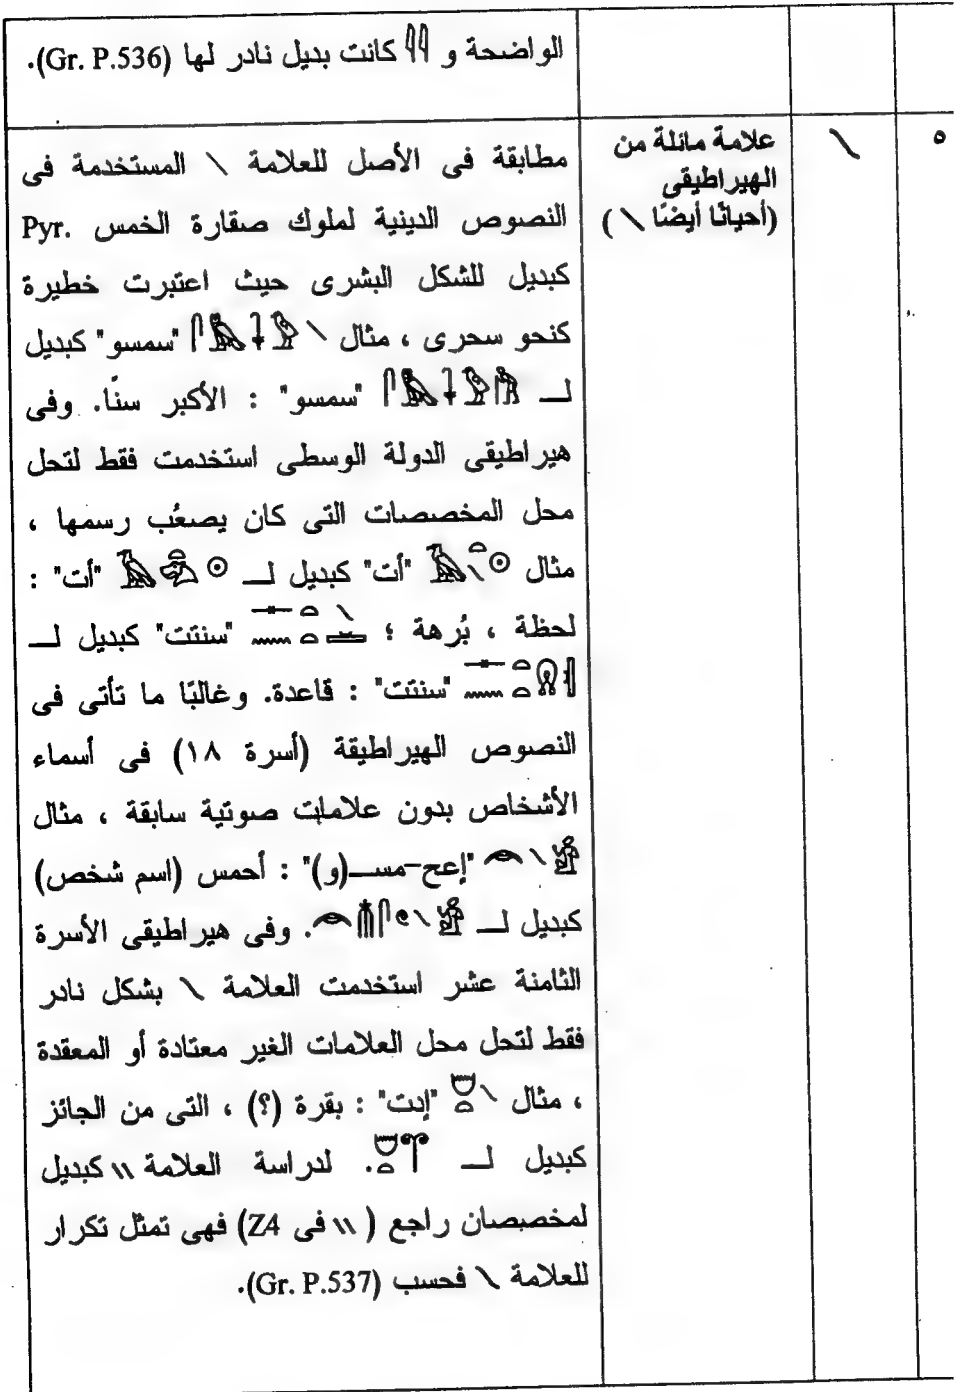 الواضحة و 𓇌 كانت بديل نادر لها (Gr. P.536).
٥
\
علامة مائلة من
الهيراطيقى
(أحيانًا أيضًا \ )
مطابقة فى الأصل للعلامة \ المستخدمة فى
النصوص الدينية لملوك صقارة الخمس Pyr.
كبديل للشكل البشرى حيث اعتبرت خطيرة
كنحو سحرى ، مثال \ "سمسو" كبديل
لـــ "سمسو" : الأكبر سنًا. وفى
هيراطيقى الدولة الوسطى استخدمت فقط لتحل
محل المخصصات التى كان يصعُب رسمها ،
مثال "أت" كبديل لـــ "أت" :
لحظة ، بُرهة ؛ "سنتت" كبديل لـــ
"سنتت" : قاعدة. وغالبًا ما تأتى فى
النصوص الهيراطيقة (أسرة ١٨) فى أسماء
الأشخاص بدون علامات صوتية سابقة ، مثال
"إعح-مســـ(و)" : أحمس (اسم شخص)
كبديل لـــ . وفى هيراطيقى الأسرة
الثامنة عشر استخدمت العلامة \ بشكل نادر
فقط لتحل محل العلامات الغير معتادة أو المعقدة
، مثال \ "إدت" : بقرة (؟) ، التى من الجائز
كبديل لـــ . لدراسة العلامة \\ كبديل
لمخصصان راجع ( \\ فى Z4) فهى تمثل تكرار
للعلامة \ فحسب (Gr. P.537).